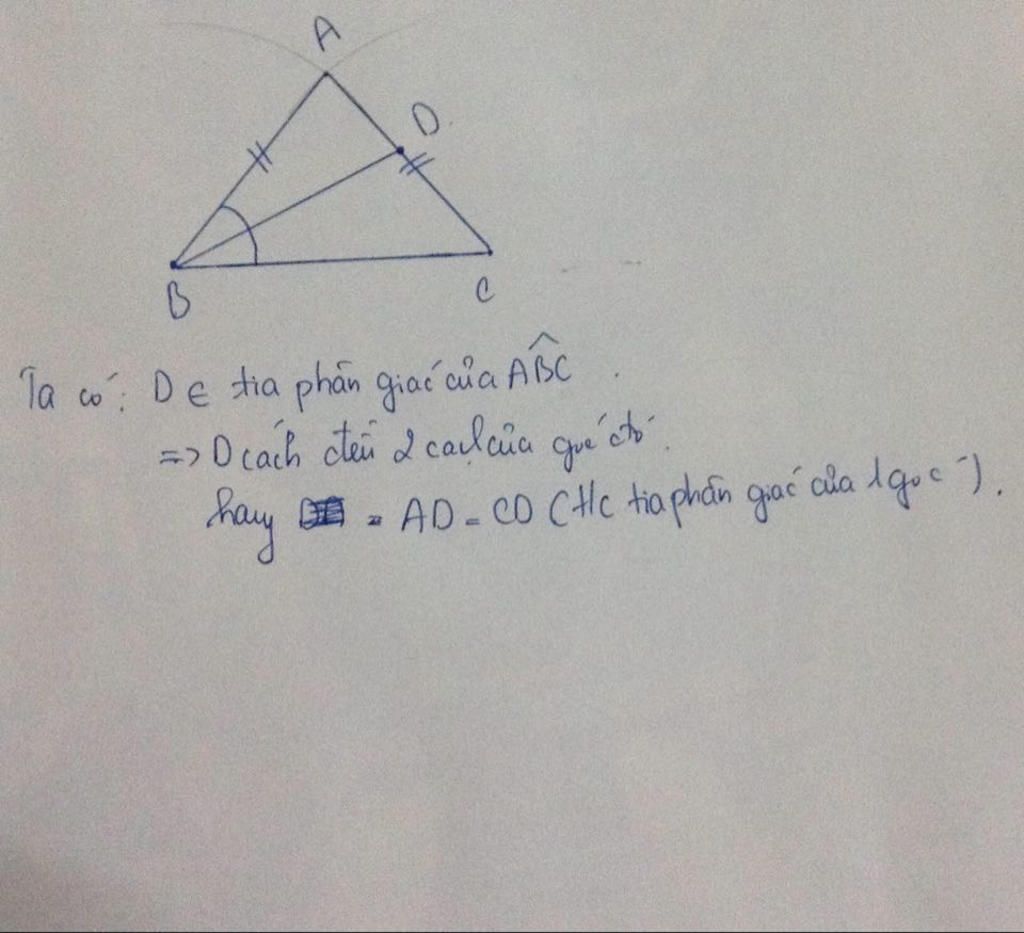 A
D
B
C
Ta có: D ∈ tia phân giác của ABC
=> D cách đều 2 cạnh của góc đó.
hay = AD = CD (t/c tia phân giác của 1 góc).